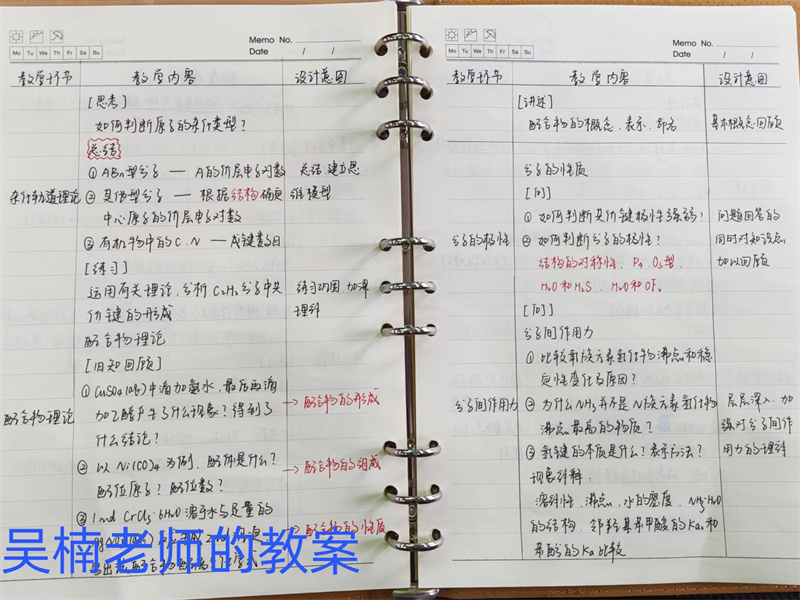 Memo No.
Mo Tu We Th Fr Sa Su
Date / /
教学环节 教学内容 设计意图
[思考]
如何判断原子的杂化类型?
总结
① ABn型分子 — A的价层电子对数 总结,建立思
杂化轨道理论 ② 其他型分子 — 根据结构确定 维模型
中心原子的价层电子对数
③ 有机物中的C.N — 成键数目
[练习]
运用有关理论,分析C₂H₂分子中共 练习巩固,加深
价键的形成 理解
配合物理论
[旧知回顾]
① CuSO₄(aq)中滴加氨水,最后再滴
配合物理论 加乙醇产生了什么现象?得到了 → 配合物的形成
什么结论?
② 以Ni(CO)₄为例,配体是什么? → 配合物的组成
配位原子?配位数?
③ 1mol CrCl₃·6H₂O溶于水与足量的
配合物的性质
吴楠老师的教案
Memo No.
Mo Tu We Th Fr Sa Su
Date / /
教学环节 教学内容 设计意图
[讲述]
配合物的概念、表示、命名 基本概念回顾
分子的性质
[问]
① 如何判断共价键极性强弱? 问题回答的
分子的极性 ② 如何判断分子的极性? 同时对知识点
结构的对称性、P₄、O₃型、 加以回顾
H₂O和H₂S、H₂O和OF₂
[问]
分子间作用力
① 比较氧族元素氢化物沸点和稳
定性变化及原因?
分子间作用力 ② 为什么NH₃并不是N族元素氢化物 层层深入,加
沸点最高的物质? 强对分子间作
③ 氢键的本质是什么?表示方法? 用力的理解
现象解释:
溶解性、沸点、水的密度、NH₃·H₂O
的结构、邻羟基苯甲酸的Ka₂和
苯酚的Ka比较